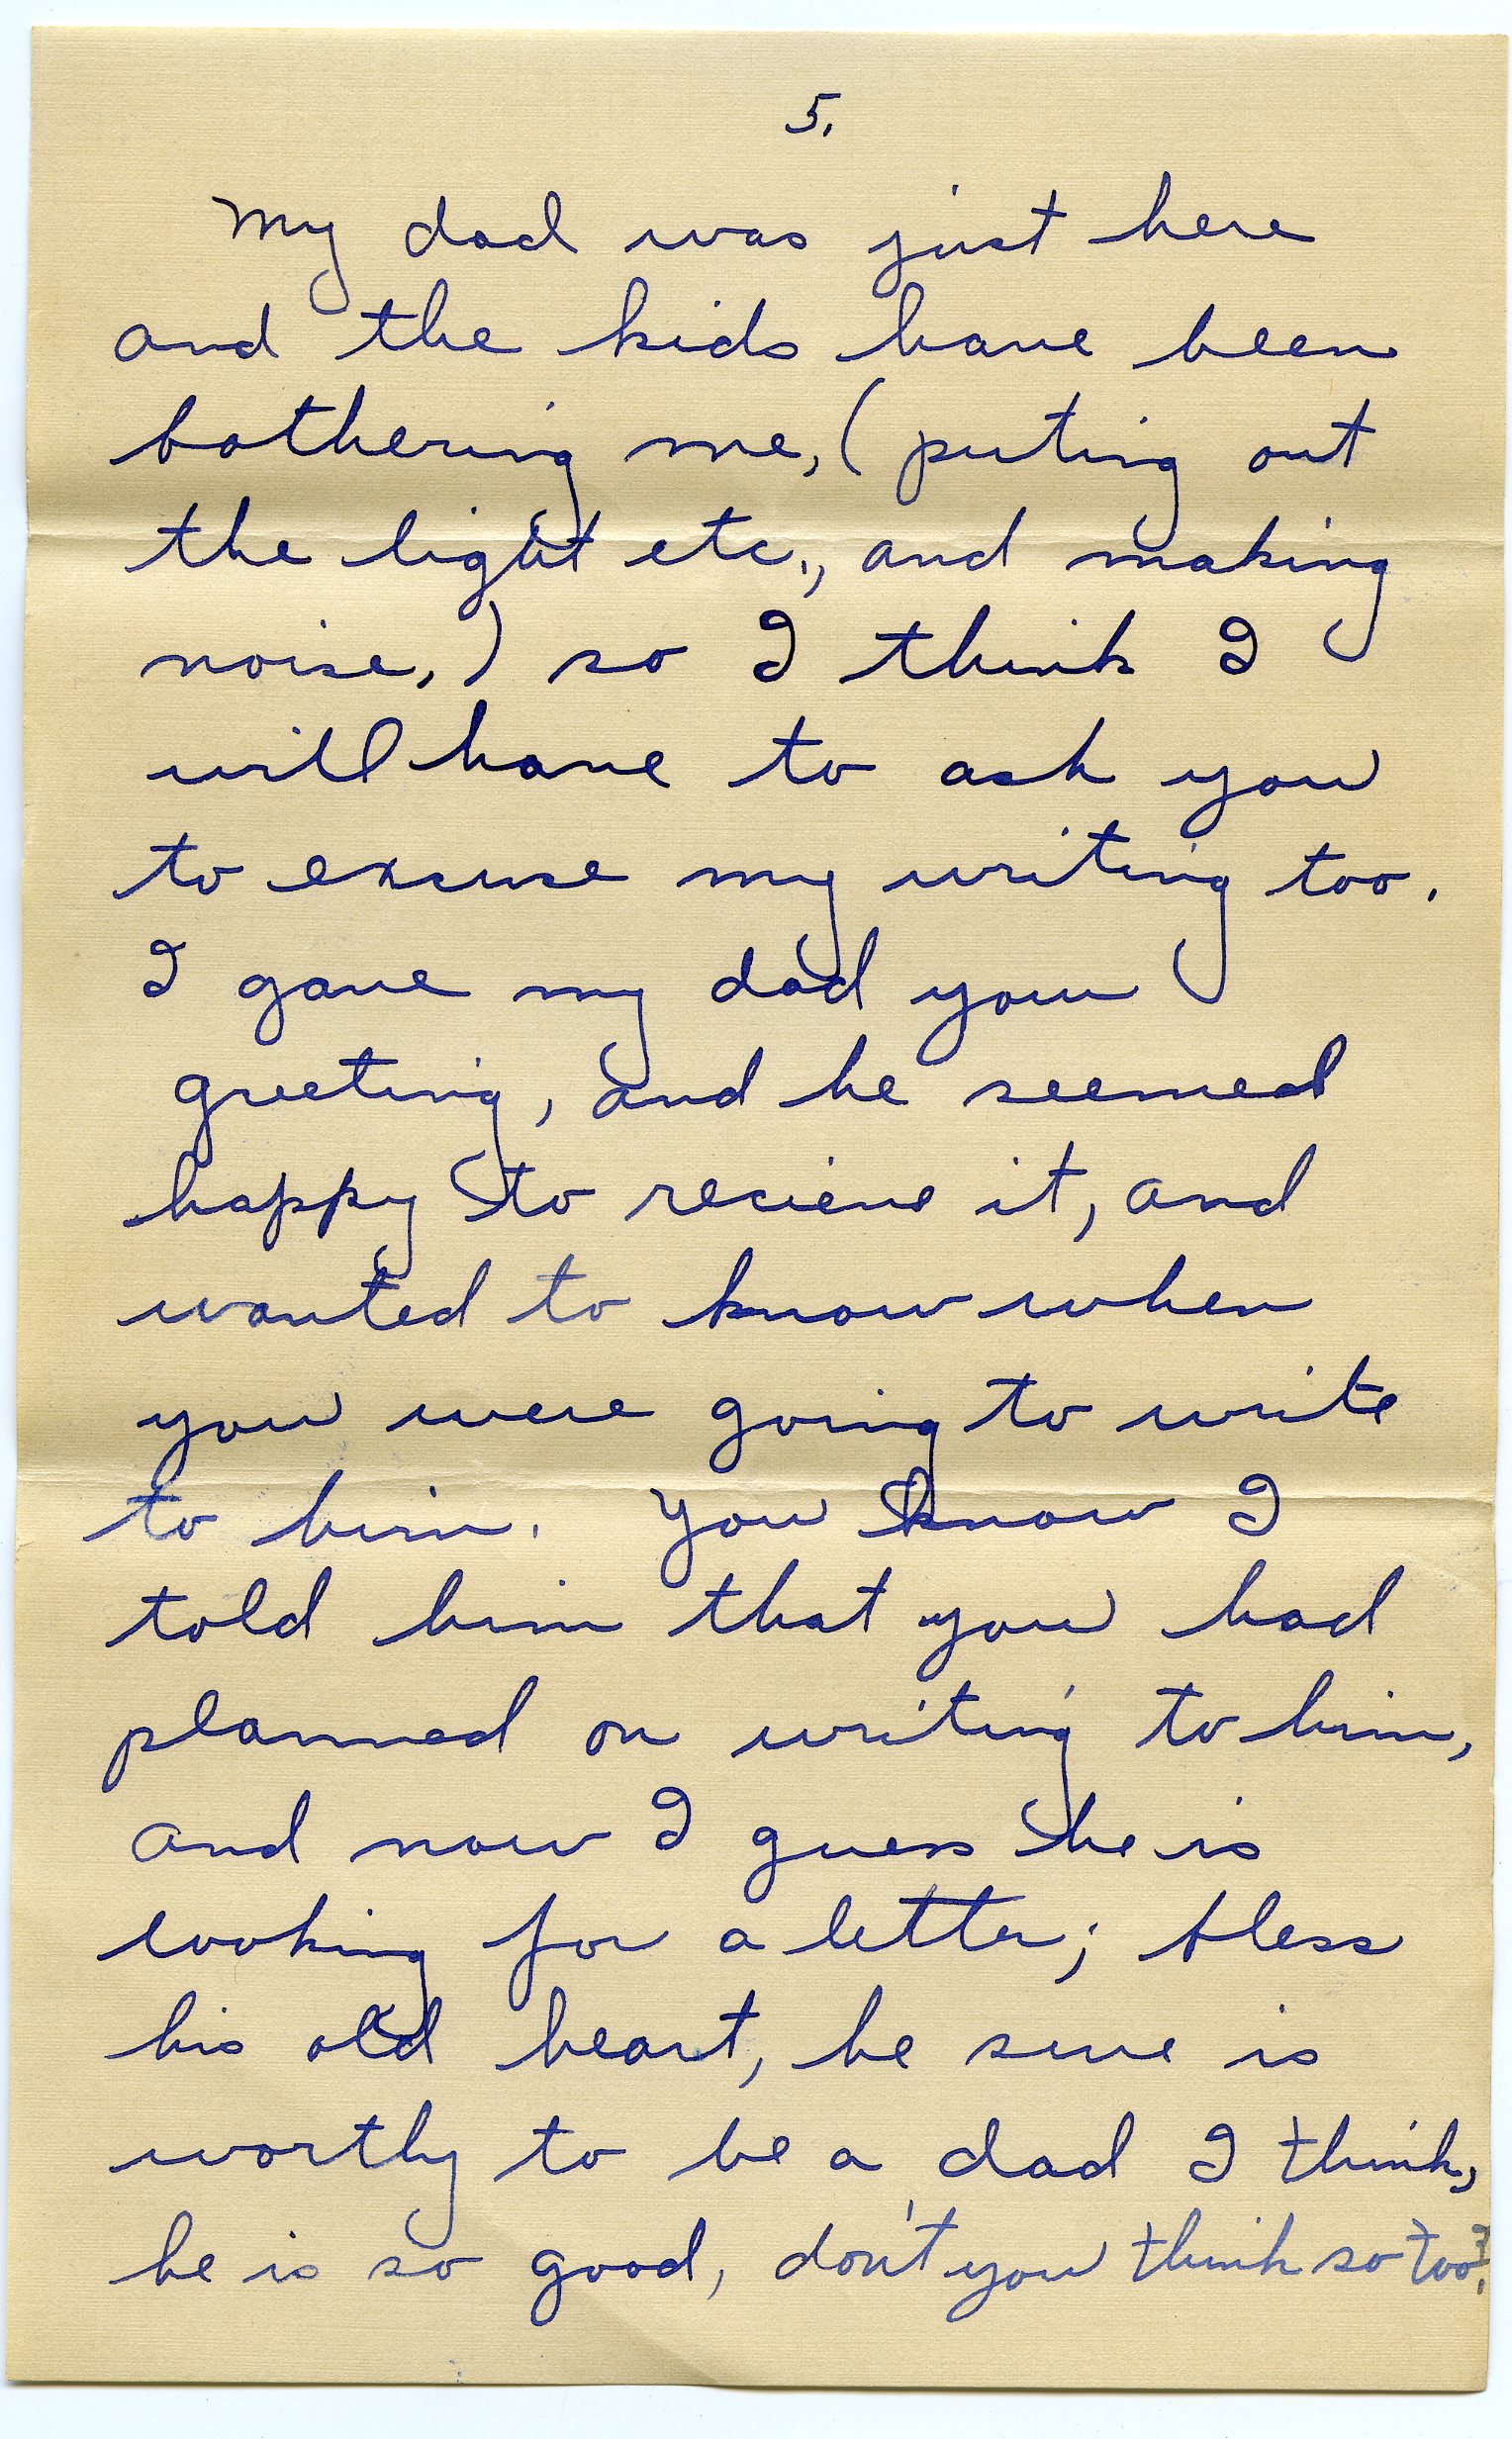 5.
My dad was just here
and the kids have been
bothering me, (puting out
the light etc., and making
noise,) so I think I
will have to ask you
to excuse my writing too.
I gave my dad your
greeting, and he seemed
happy to recieve it, and
wanted to know when
you were going to write
to him. You know I
told him that you had
planned on writing to him,
and now I guess he is
looking for a letter; bless
his old heart, he sure is
worthy to be a dad I think,
he is so good, don't you think so too?